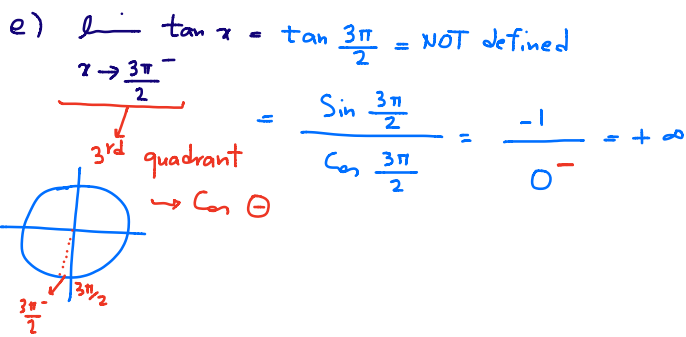 e) lim tan x = tan 3π/2 = NOT defined
x → 3π/2⁻
= Sin 3π/2 / Cos 3π/2 = -1 / 0⁻ = + ∞
3rd quadrant
→ Cos ⊖
3π/2
3π⁻/2